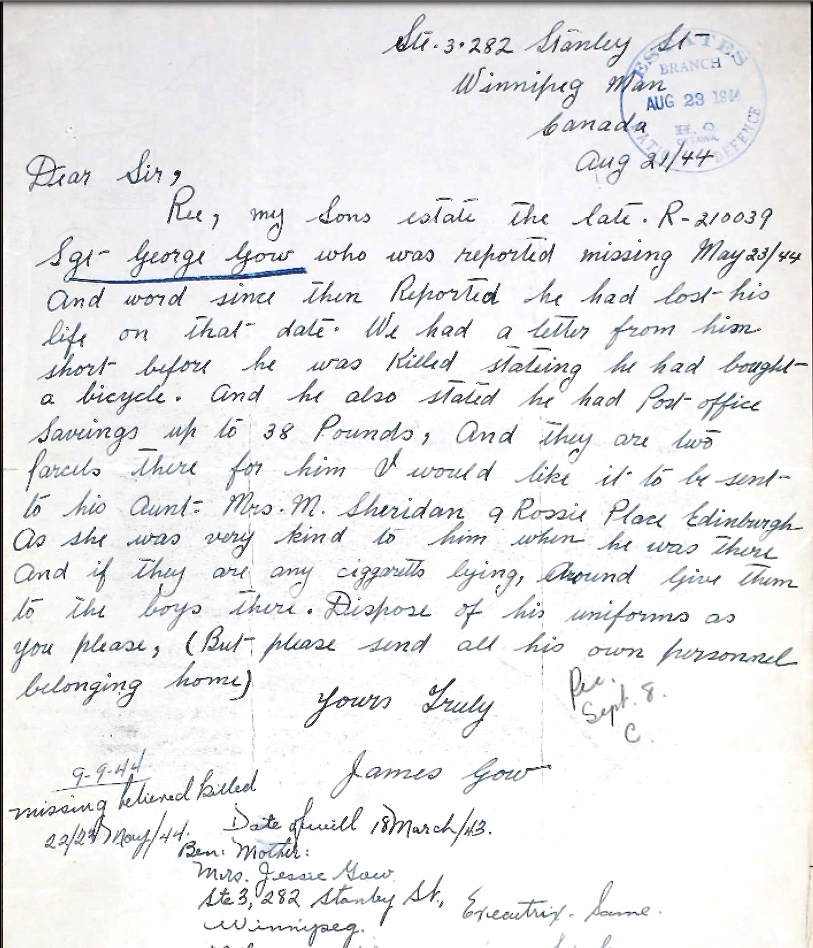 Ste. 3. 282 Stanley St
Winnipeg Man
Canada
Aug 21/44
ESTATES
BRANCH
AUG 23 1944
H.Q.
OTTAWA
NATIONAL DEFENCE
Dear Sir,
Ree, my Sons estate the late. R-210039
Sgt George Gow who was reported missing May 23/44
And word since then Reported he had lost his
life on that date. We had a letter from him
short before he was Killed stateing he had bought
a bicycle. And he also stated he had Post office
Saveings up to 38 Pounds, And they are two
parcels there for him I would like it to be sent
to his Aunt: Mrs. M. Sheridan 9 Rossie Place Edinburgh
As she was very kind to him when he was there
And if they are any ciggaretts lying, around Give them
to the boys there. Dispose of his uniforms as
you please, (But please send all his own personnel
belonging home)
Yours Truly
Rec.
Sept. 8.
C.
James Gow
9-9-44
missing believed killed
22/23 May/44.
Date of will 18 March/43.
Ben: Mother:
Mrs. Jessie Gow
Ste 3, 282 Stanley St,
Executrix. Same.
Winnipeg.